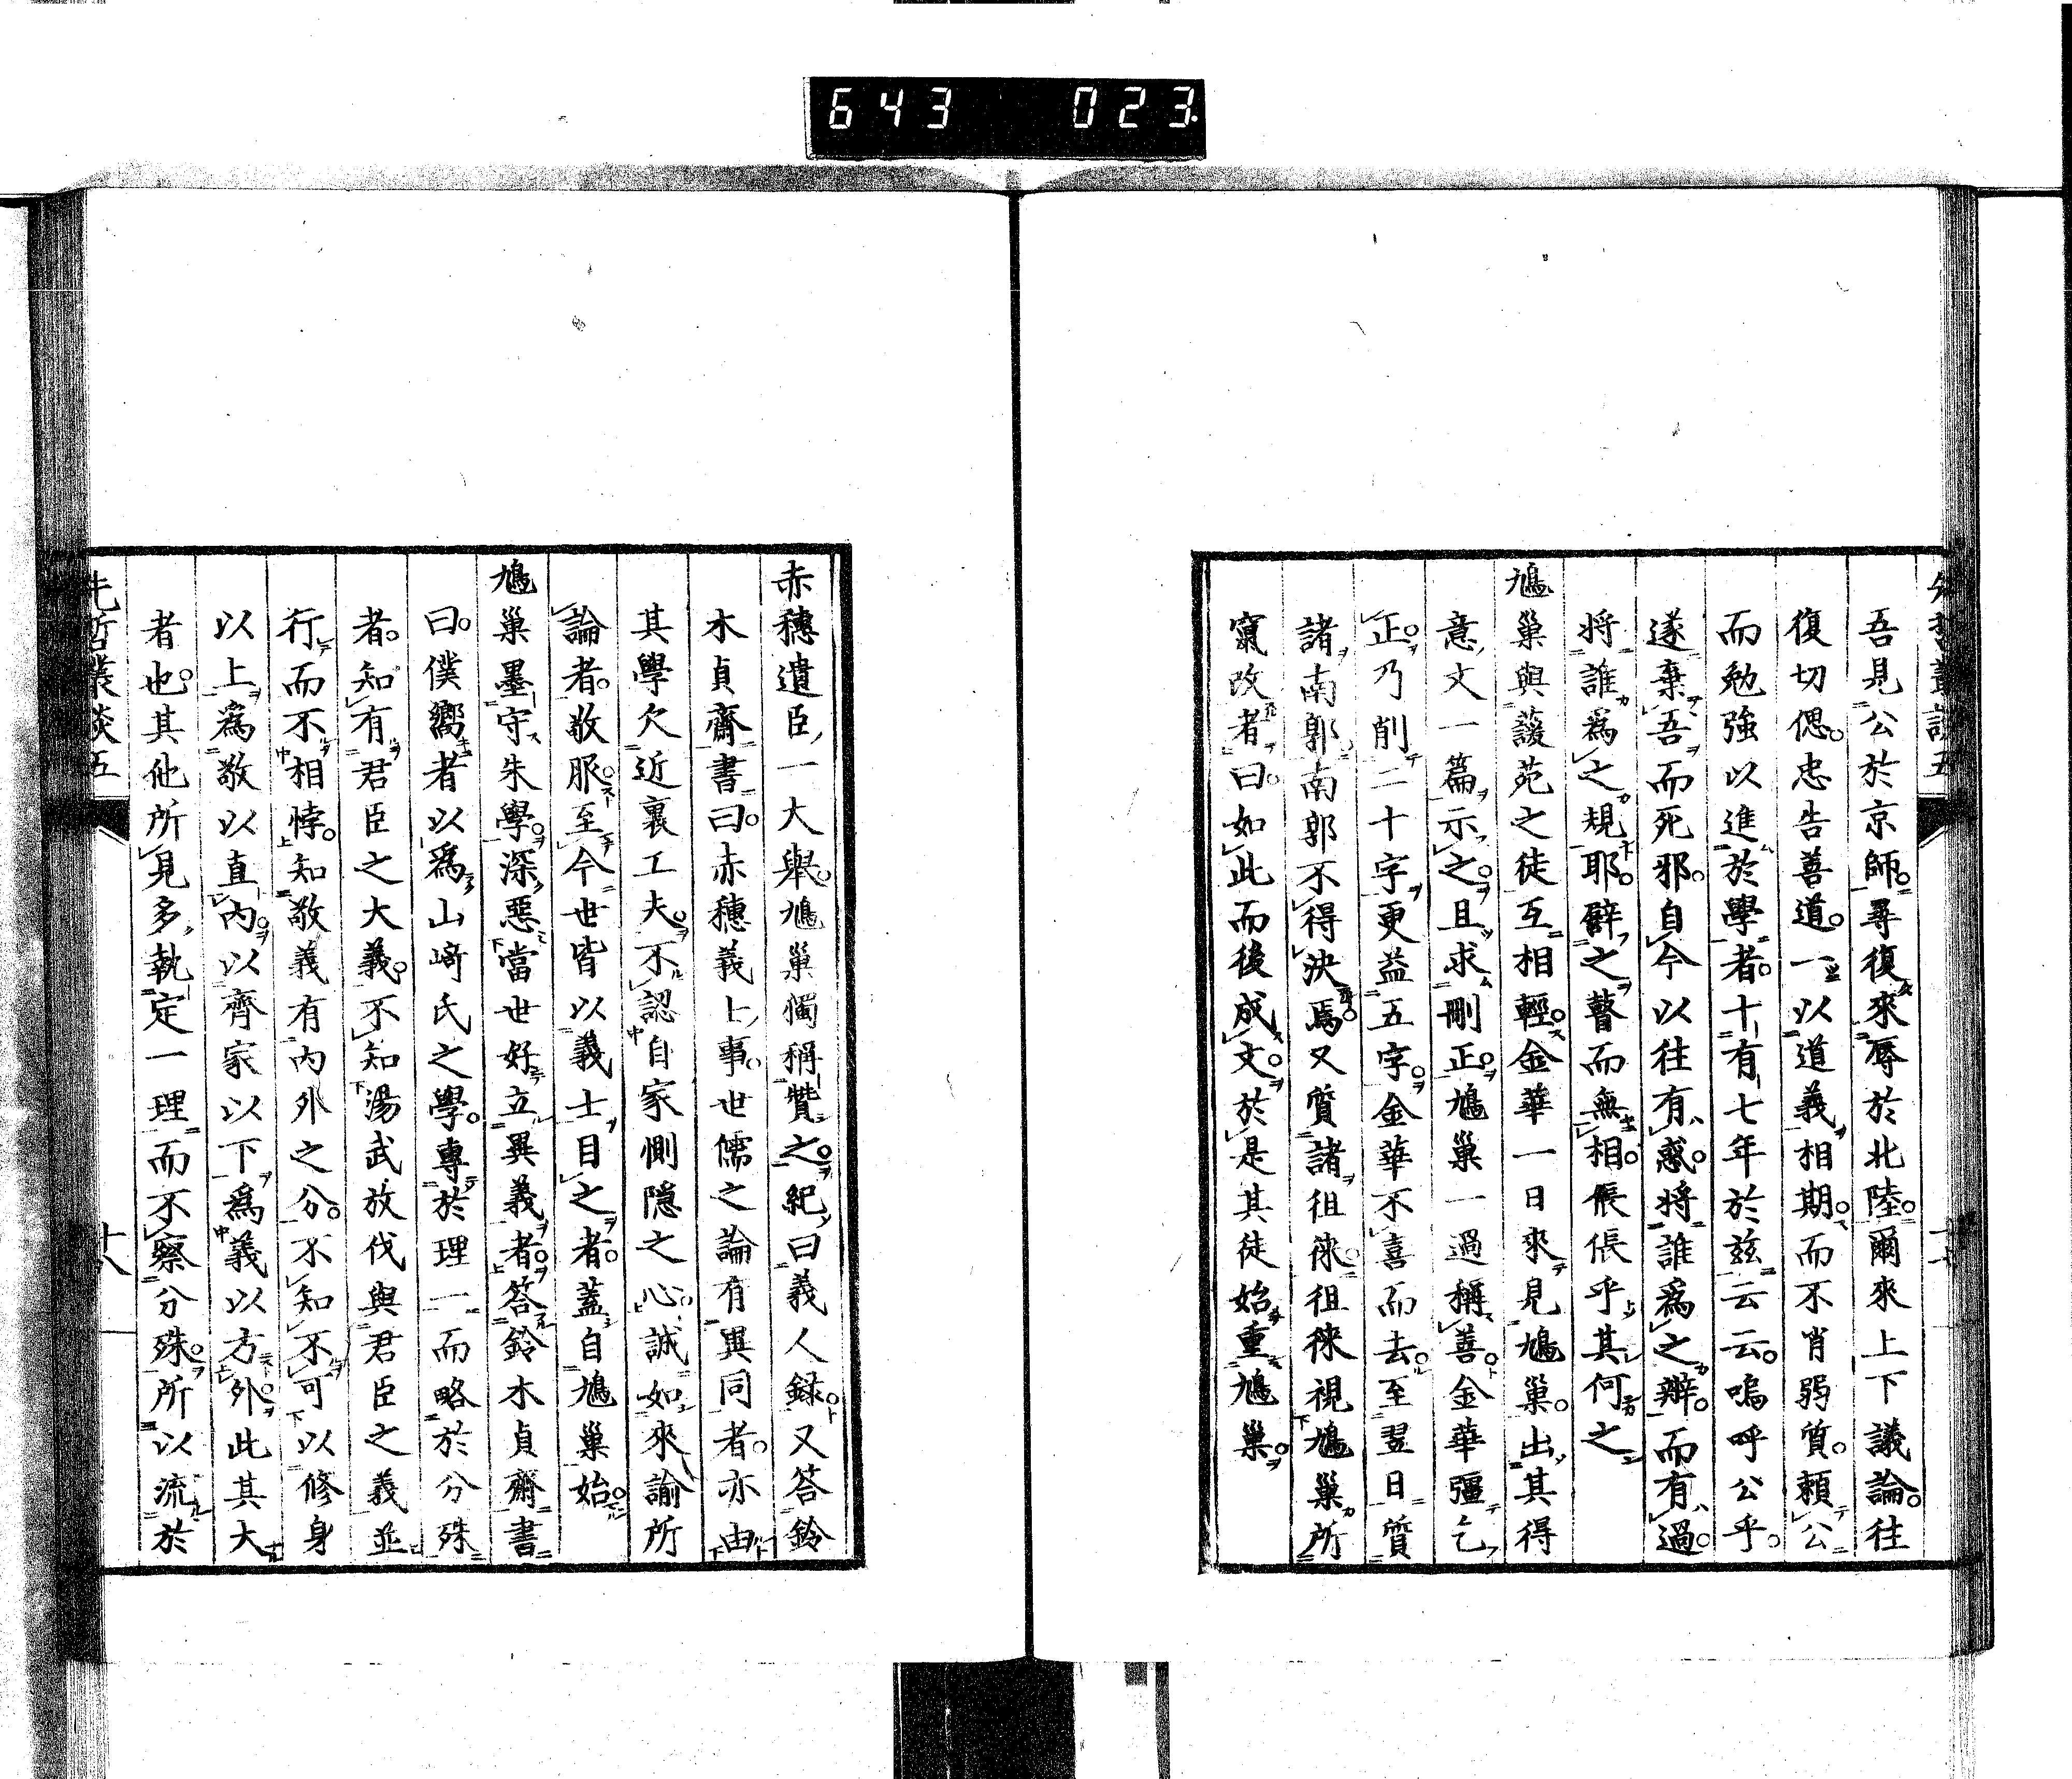 643 023
吾見公於京師。尋復來辱於北陸。爾來上下議論。往
復切偲。忠告善道。一以道義相期。而不肖弱質。頼公
而勉強以進於學者。十有七年於茲云云。嗚呼公乎。
遂棄吾而死邪。自今以往有惑。將誰爲之辨。而有過。
將誰爲之規耶。辟之瞽而無相。倀倀乎其何之
鳩巢與蘐苑之徒互相輕。金華一日來見鳩巢。出其得
意文一篇示之。且求刪正。鳩巢一過稱善。金華彊乞
正。乃削二十字更益五字。金華不喜而去。至翌日質
諸南郭。南郭不得決焉。又質諸徂徠。徂徠視鳩巢所
竄改者曰。如此而後成文。於是其徒始重鳩巢。
赤穗遺臣一大舉。鳩巢獨稱贊之。紀曰義人録。又答鈴
木貞齋書曰。赤穗義上事。世儒之論有異同者。亦由
其學欠近裏工夫。不認自家惻隱之心。誠如來諭所
論者。敬服至今世皆以義士目之者。蓋自鳩巢始。
鳩巢墨守朱學。深惡當世好立異義者。答鈴木貞齋書
曰。僕嚮者以爲山﨑氏之學。專於理一而略於分殊
者。知有君臣之大義。不知湯武放伐與君臣之義並
行而不相悖。知敬義有內外之分。不知不可以修身
以上爲敬以直內。以齊家以下爲義以方外。此其大
者也。其他所見多執定一理而不察分殊。所以流於
先哲叢談五
十八